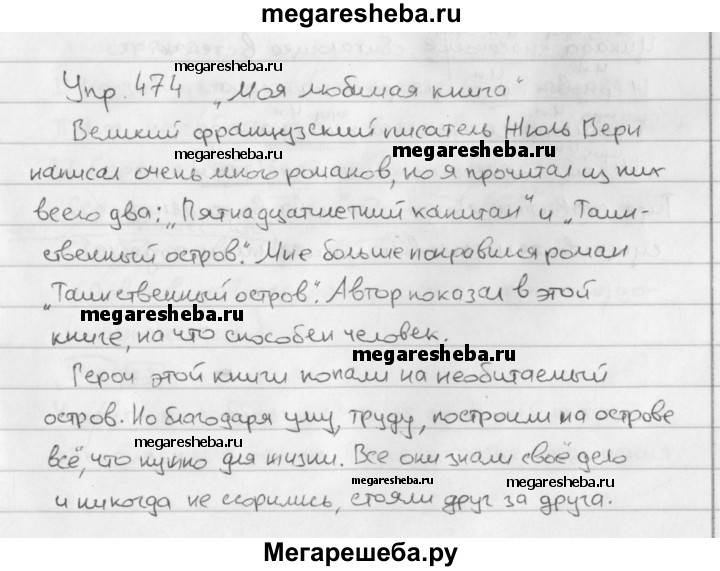 megaresheba.ru
megaresheba.ru
Упр. 474 „Моя любимая книга“
Великий французский писатель Жюль Верн
megaresheba.ru
megaresheba.ru
написал очень много романов, но я прочитал из них
всего два: „Пятнадцатилетний капитан“ и „Таин-
ственный остров“. Мне больше понравился роман
„Таинственный остров“. Автор показал в этой
megaresheba.ru
книге, на что способен человек.
megaresheba.ru
Герои этой книги попали на необитаемый
остров. Но благодаря уму, труду, построили на острове
megaresheba.ru
всё, что нужно для жизни. Все они знали своё дело
megaresheba.ru
megaresheba.ru
и никогда не ссорились, стояли друг за друга.
Мегарешеба.ру